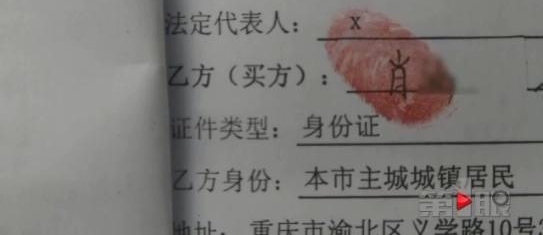 法定代表人： x
乙方（买方）： 肖
证件类型： 身份证
乙方身份： 本市主城城镇居民
地址： 重庆市渝北区义学路10号